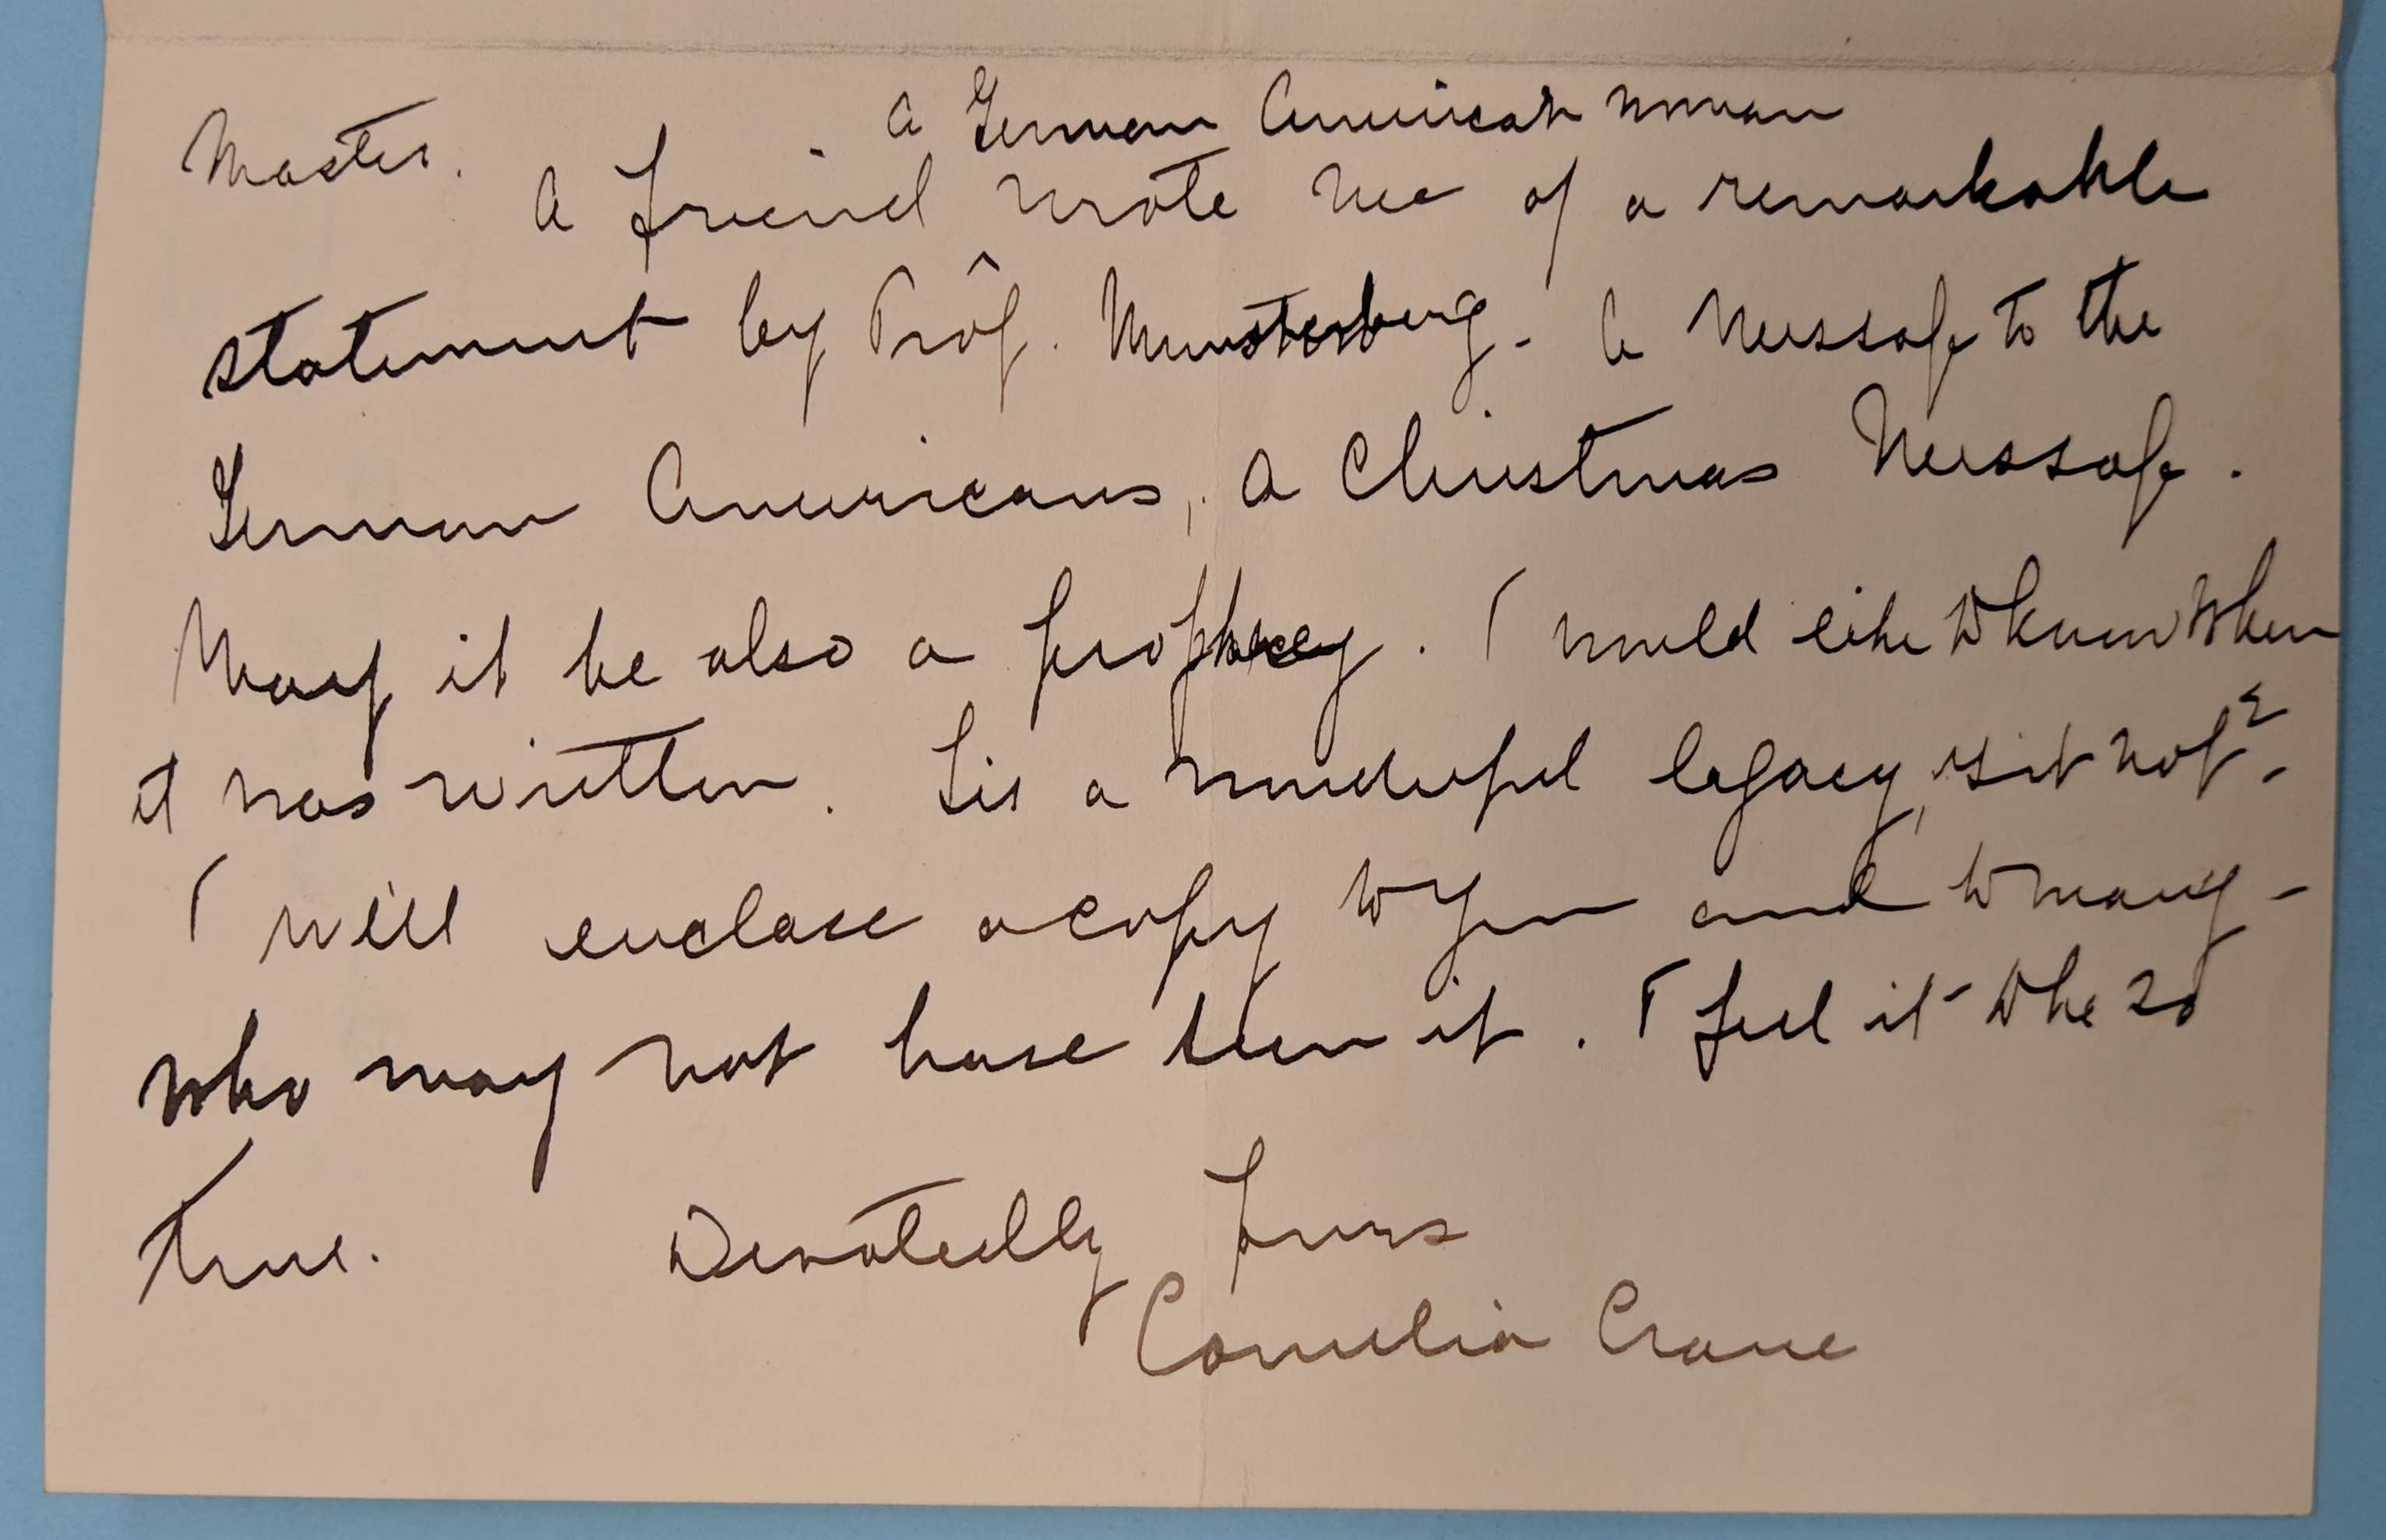 a German American woman
Master. A friend wrote me of a remarkable
statement by Prof. Munsterberg - A Message to the
German Americans, a Christmas Message.
May it be also a prophecy. I would like to know when
it was written. Tis a wonderful legacy, is it not?
I will enclose a copy to you and to many -
who may not have seen it. I feel it to be so
true. Devotedly Yours
Cornelia Crane